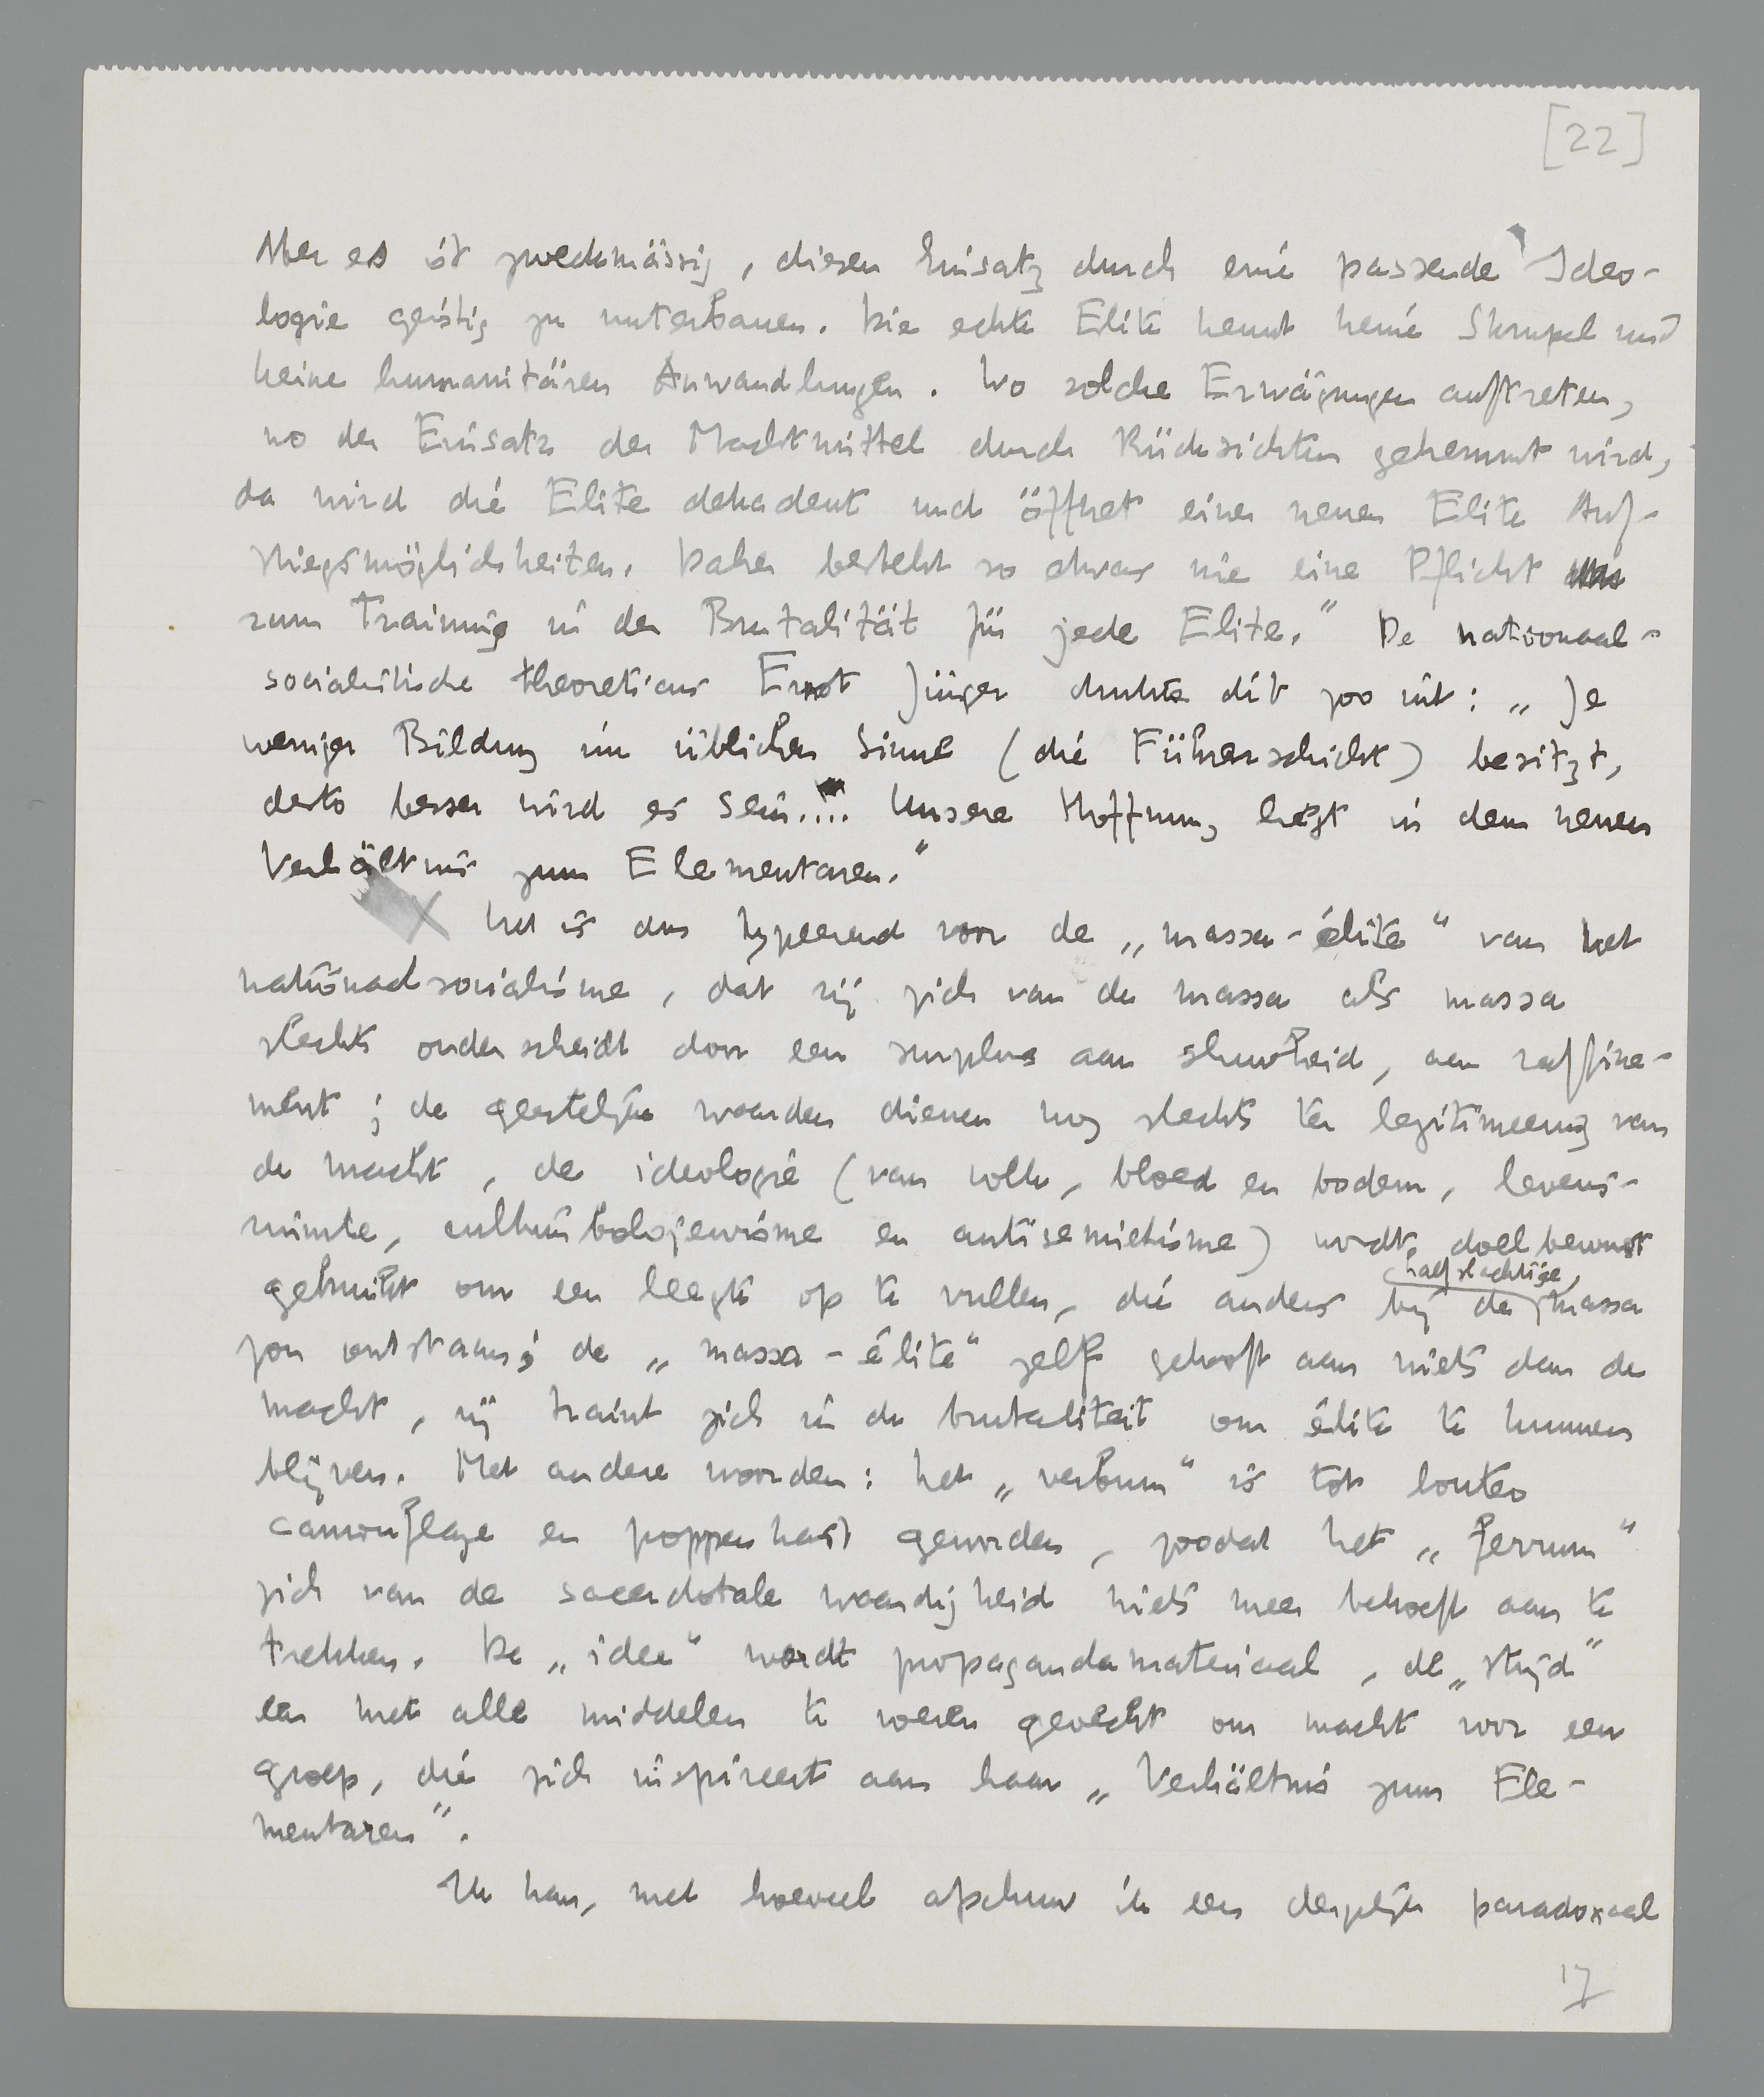 [22]
Aber es ist zweckmässig, diesen Einsatz durch eine passende Ideo-
logie geistig zu unterbauen. Die echte Elite kennt keine Skrupel und
keine humanitären Anwandlungen. Wo solche Erwägungen auftreten,
wo der Einsatz der Machtmittel durch Rücksichten gehemmt wird,
da wird die Elite dekadent und öffnet einer neuen Elite Auf-
stiegsmöglichkeiten. Daher besteht so etwas wie eine Pflicht
zum Training in der Brutalität für jede Elite." De nationaal-
socialistische theoreticus Ernst Jünger drukte dit zoo uit: „Je
weniger Bildung im üblichen Sinne (die Führerschicht) besitzt,
desto besser wird es sein.... Unsere Hoffnung liegt in dem neuen
Verhältnis zum Elementaren."
X Het is dus typeerend voor de „massa-élite" van het
nationaalsocialisme, dat zij zich van de massa als massa
slechts onderscheidt door een surplus aan sluwheid, aan raffine-
ment; de geestelijke waarden dienen nog slechts ter legitimeering van
de macht, de ideologie (van volk, bloed en bodem, levens-
ruimte, cultuurbolsjewisme en antisemietisme) wordt doelbewust
gebruikt om een leegte op te vullen, die anders bij de halfslachtige, massa
zou ontstaan; de „massa-élite" zelf gelooft aan niets dan de
macht, zij traint zich in de brutaliteit om élite te kunnen
blijven. Met andere woorden: het „verbum" is tot louter
camouflage en poppenkast geworden, zoodat het „ferrum"
zich van de sacerdotale waardigheid niets meer behoeft aan te
trekken. De „idee" wordt propagandamateriaal, de „strijd"
een met alle middelen te voeren gevecht om macht voor een
groep, die zich inspireert aan haar „Verhältnis zum Ele-
mentaren".
Ik kan, met hoeveel afschuw ik een dergelijke paradoxaal
17